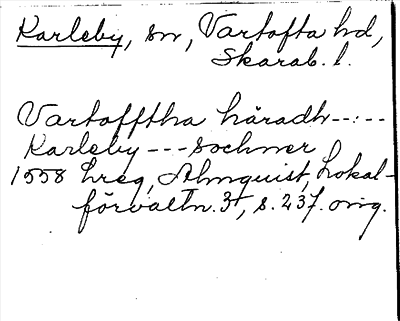 Karleby, sn, Vartofta hd,
Skarab. l.
Vartofftha häradh --:--
Karleby --- sochner
1558 hreg, Almquist, Lokal-
förvaltn. 3, s. 237. orig.